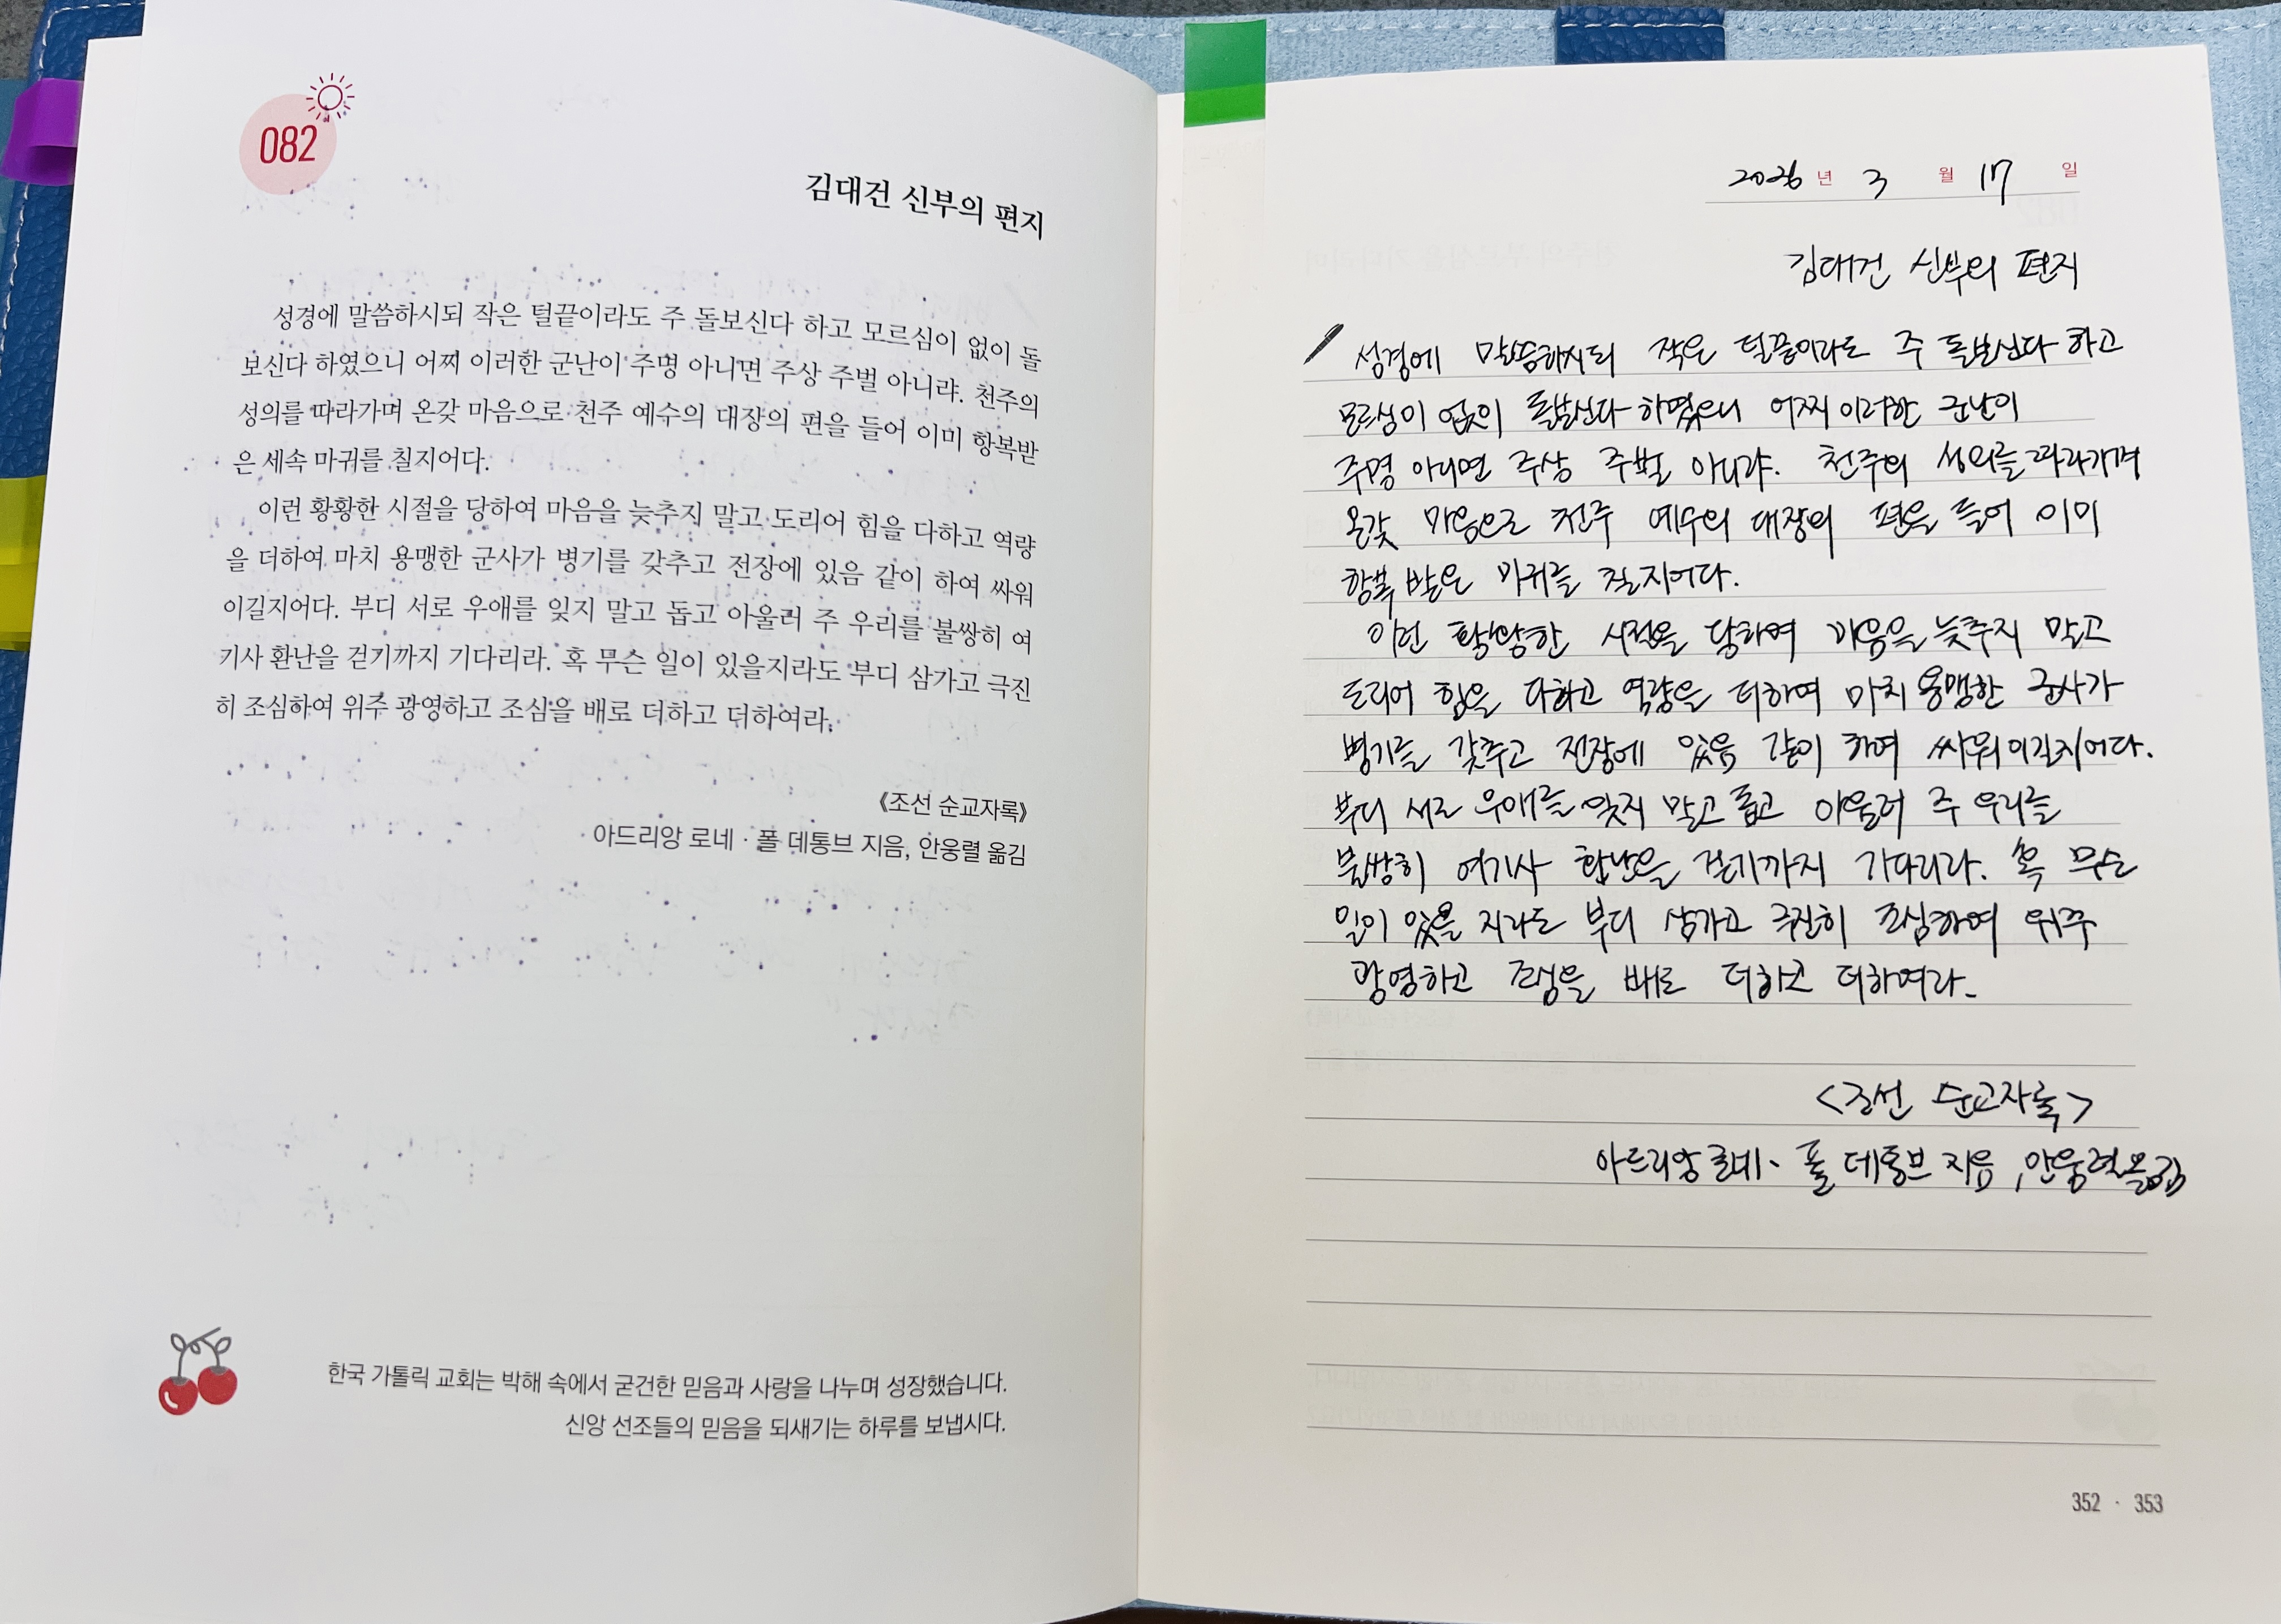 082
김대건 신부의 편지
성경에 말씀하시되 작은 털끝이라도 주 돌보신다 하고 모르심이 없이 돌
보신다 하였으니 어찌 이러한 군난이 주명 아니면 주상 주벌 아니랴. 천주의
성의를 따라가며 온갖 마음으로 천주 예수의 대장의 편을 들어 이미 항복받
은 세속 마귀를 칠지어다.
이런 황황한 시절을 당하여 마음을 늦추지 말고 도리어 힘을 다하고 역량
을 더하여 마치 용맹한 군사가 병기를 갖추고 전장에 있음 같이 하여 싸워
이길지어다. 부디 서로 우애를 잊지 말고 돕고 아울러 주 우리를 불쌍히 여
기사 환난을 걷기까지 기다리라. 혹 무슨 일이 있을지라도 부디 삼가고 극진
히 조심하여 위주 광영하고 조심을 배로 더하고 더하여라.
《조선 순교자록》
아드리앙 로네 · 폴 데통브 지음, 안응렬 옮김
한국 가톨릭 교회는 박해 속에서 굳건한 믿음과 사랑을 나누며 성장했습니다.
신앙 선조들의 믿음을 되새기는 하루를 보냅시다.
2026 년 3 월 17 일
김대건 신부의 편지
성경에 말씀하시되 작은 털끝이라도 주 돌보신다 하고
모르심이 없이 돌보신다 하였으니 어찌 이러한 군난이
주명 아니면 주상 주벌 아니랴. 천주의 성의를 따라가며
온갖 마음으로 천주 예수의 대장의 편을 들어 이미
항복 받은 마귀를 칠지어다.
이런 황황한 시절을 당하여 마음을 늦추지 말고
도리어 힘을 다하고 역량을 더하여 마치 용맹한 군사가
병기를 갖추고 전장에 있음 같이 하여 싸워 이길지어다.
부디 서로 우애를 잊지 말고 돕고 아울러 주 우리를
불쌍히 여기사 환난을 걷기까지 기다리라. 혹 무슨
일이 있을 지라도 부디 삼가고 극진히 조심하여 위주
광영하고 조심을 배로 더하고 더하여라.
<조선 순교자록>
아드리앙 로네 · 폴 데통브 지음, 안응렬 옮김
352 · 353